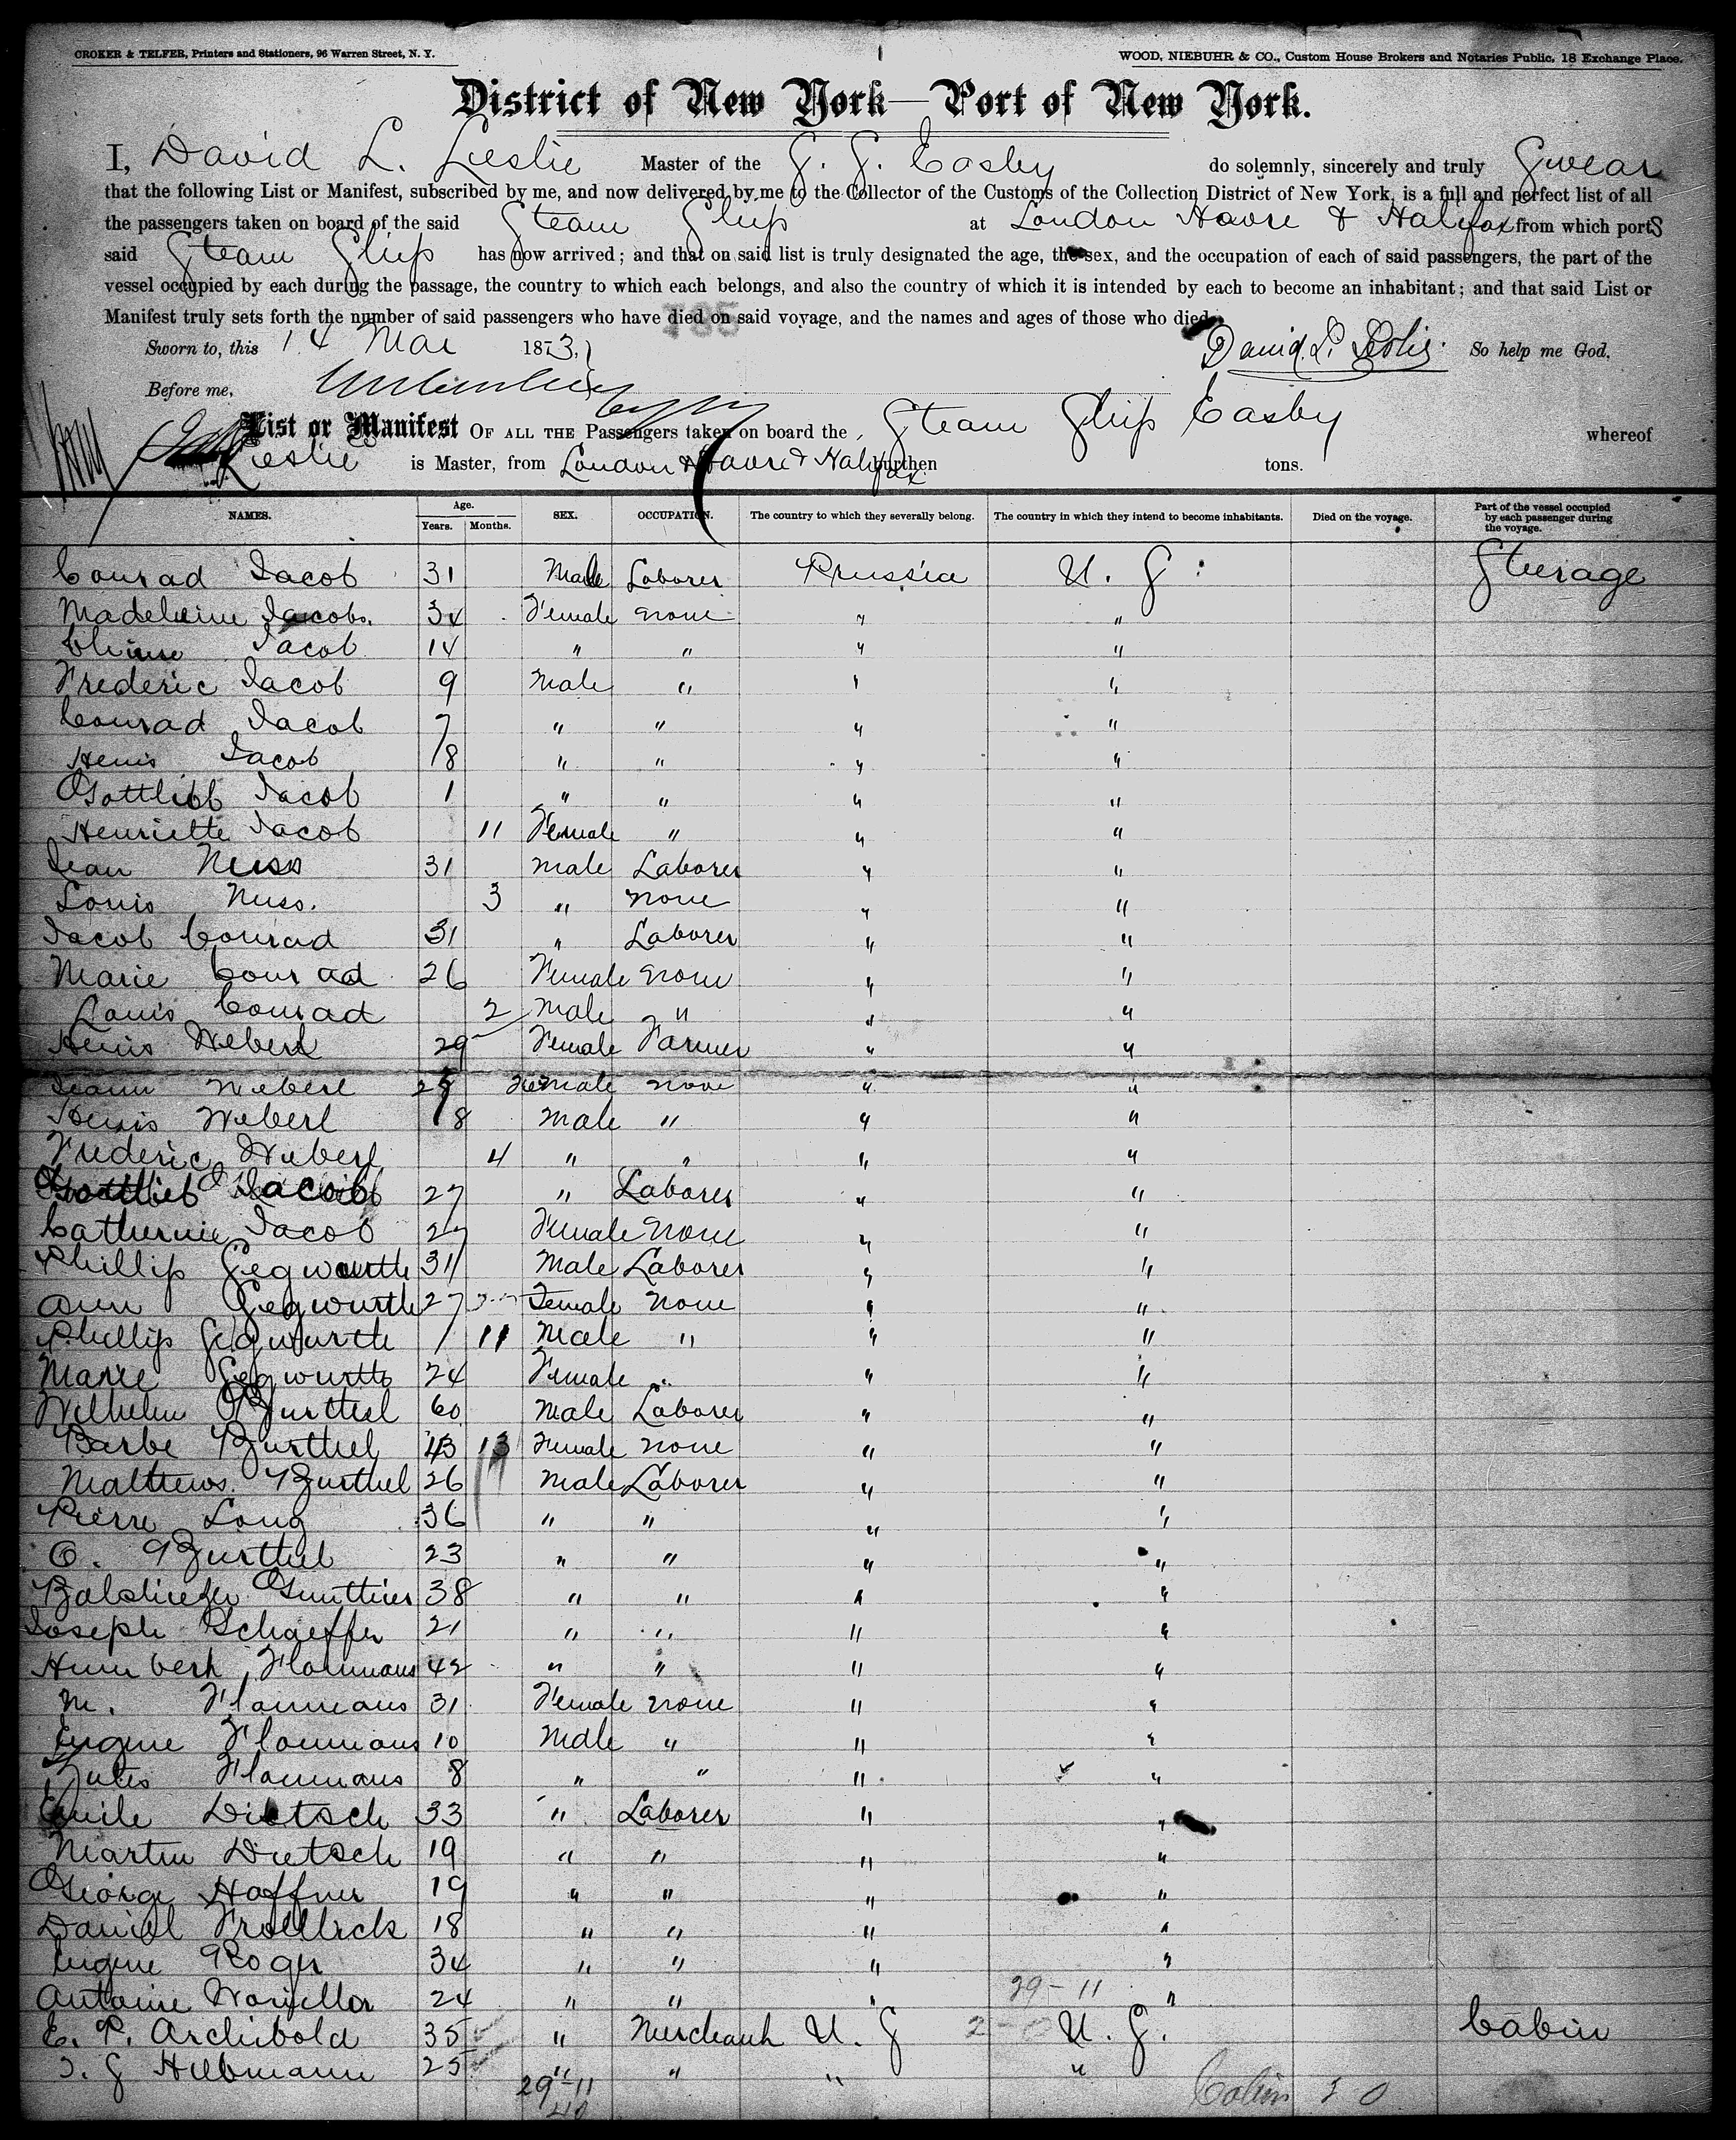 CROKER & TELFER, Printers and Stationers, 96 Warren Street, N. Y.
WOOD, NIEBUHR & CO., Custom House Brokers and Notaries Public, 18 Exchange Place.
District of New York—Port of New York.
I, David L. Leslie Master of the G. G. Easby do solemnly, sincerely and truly Swear
that the following List or Manifest, subscribed by me, and now delivered by me to the Collector of the Customs of the Collection District of New York, is a full and perfect list of all
the passengers taken on board of the said Steam Ship at London Havre & Halifax from which ports
said Steam Ship has now arrived; and that on said list is truly designated the age, the sex, and the occupation of each of said passengers, the part of the
vessel occupied by each during the passage, the country to which each belongs, and also the country of which it is intended by each to become an inhabitant; and that said List or
Manifest truly sets forth the number of said passengers who have died on said voyage, and the names and ages of those who died.
785
Sworn to, this 14 Mar 1873, David L. Leslie So help me God.
Before me,
List or Manifest OF ALL THE Passengers taken on board the Steam Ship Easby whereof
Leslie is Master, from London & Havre & Halifax burthen tons.
NAMES. Age. Years. Months. SEX. OCCUPATION. The country to which they severally belong. The country in which they intend to become inhabitants. Died on the voyage. Part of the vessel occupied by each passenger during the voyage.
Conrad Jacob 31 Male Laborer Prussia U. S. Steerage
Madeleine Jacobs. 34 Female None " "
Jacob 14 " " " "
Frederic Jacob 9 Male " " "
Conrad Jacob 7 " " " "
Jacob 8 " " " "
Gottlieb Jacob 1 " " " "
Henriette Jacob 11 Female " " "
Jean Nuss 31 Male Laborer " "
Louis Nuss. 3 " None " "
Jacob Conrad 31 " Laborer " "
Marie Conrad 26 Female None " "
Louis Conrad 2 Male " " "
Weberl 29 Female Farmer " "
Weberl Female None " "
Weberl 8 Male " " "
Frederic Weberl 4 " " " "
Gottlieb Jacob 27 " Laborer " "
Catherine Jacob 27 Female None " "
Phillip Segwurth 31 Male Laborer " "
Ann Segwurth 27 Female None " "
Phillip Segwurth 1 11 Male " " "
Marie Segwurth 24 Female " " "
Wilhelm Burthel 60 Male Laborer " "
Barbe Burthel 43 Female None " "
Mathews Burthel 26 Male Laborer " "
Pierre Long 36 " " " "
O. Burthel 23 " " " "
38 " " " "
Joseph Schaeffer 21 " " " "
Flammans 42 " " " "
M. Flammans 31 Female None " "
Eugene Flammans 10 Male " " "
Jules Flammans 8 " " " "
Emile Dietsch 33 " Laborer " "
Martin Dietsch 19 " " " "
George Haffner 19 " " " "
Daniel 18 " " " "
Eugene Roger 34 " " " "
Antoine 24 " " " 29-11 "
E. P. Archibold 35 " Merchant U. S 2-0 U. S. Cabin
Hilbmann 25 " " " "
29-11
40
Cabin 2 0